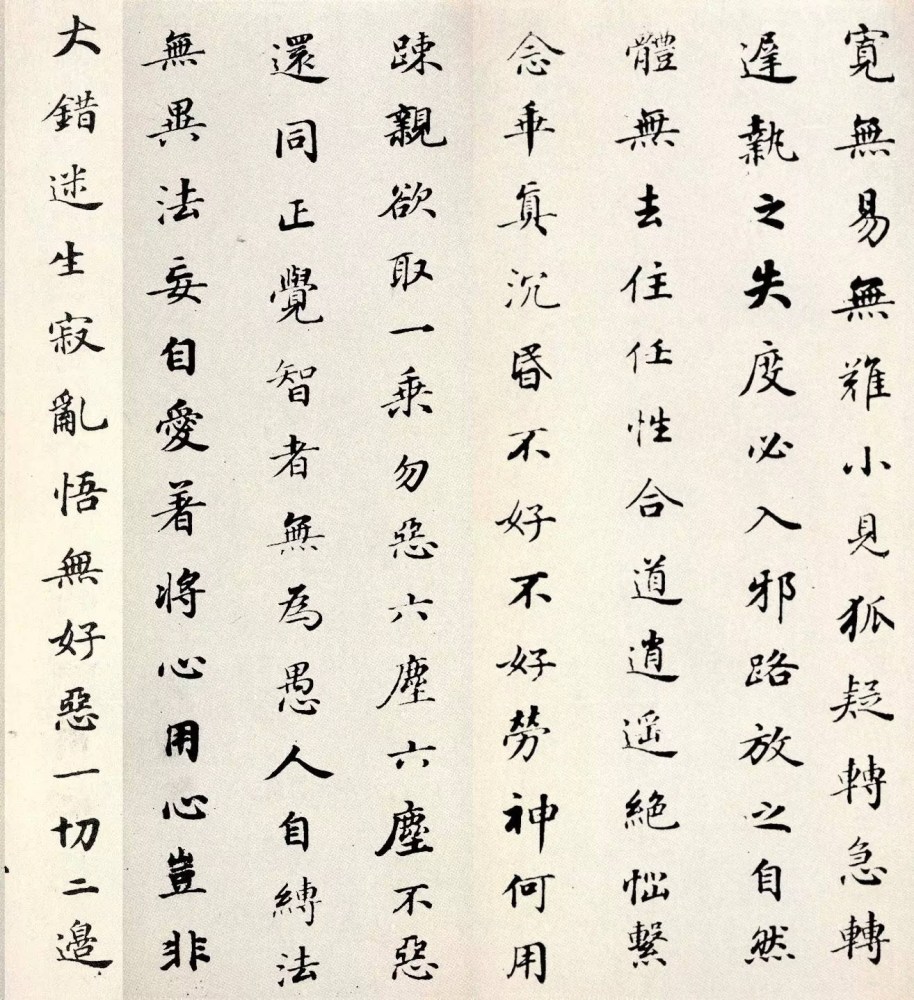 寬無易無難小見狐疑轉急轉
遲執之失度必入邪路放之自然
體無去住任性合道逍遥絶惱繫
念乖真沉昏不好不好勞神何用
踈親欲取一乗勿惡六塵六塵不惡
還同正覺智者無為愚人自縛法
無異法妄自愛著將心用心豈非
大錯迷生寂亂悟無好惡一切二邊